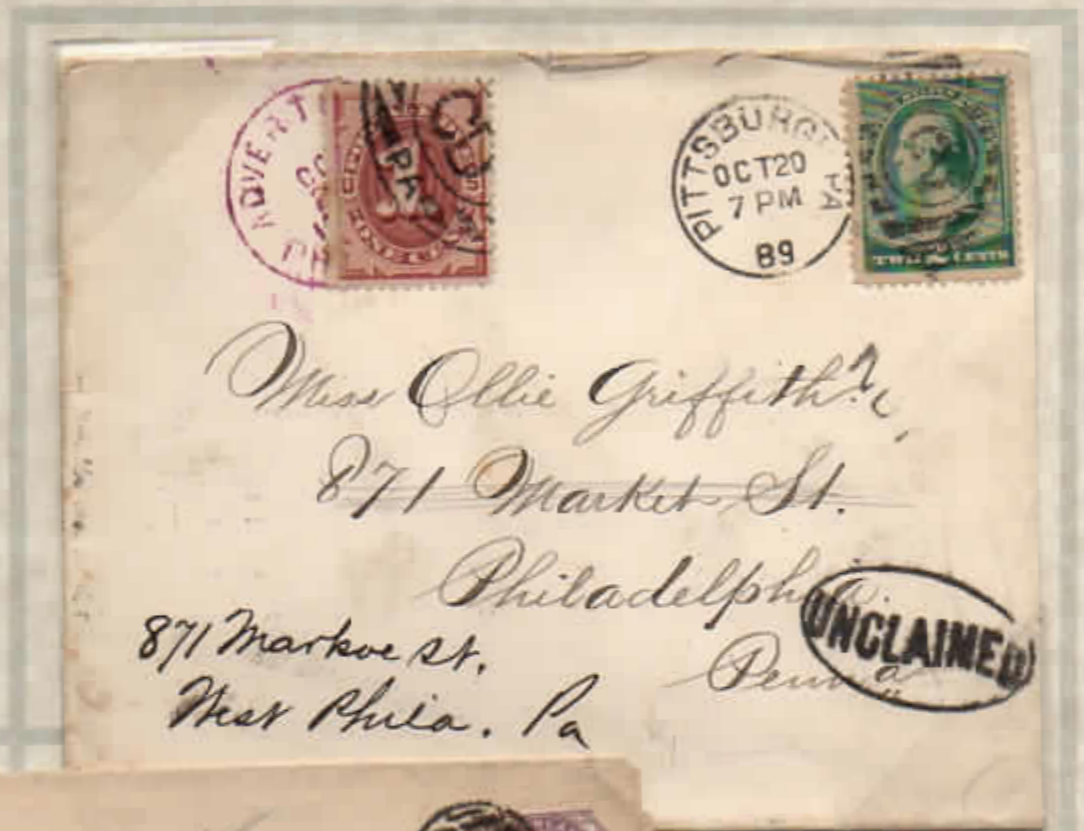 ADVERT
PITTSBURG
PA
OCT 20
7 PM
89
PA
TWO CENTS
Miss Ollie Griffith,
871 Market St.
Philadelphia.
Penna
UNCLAIMED
871 Markoe St.
West Phila. Pa